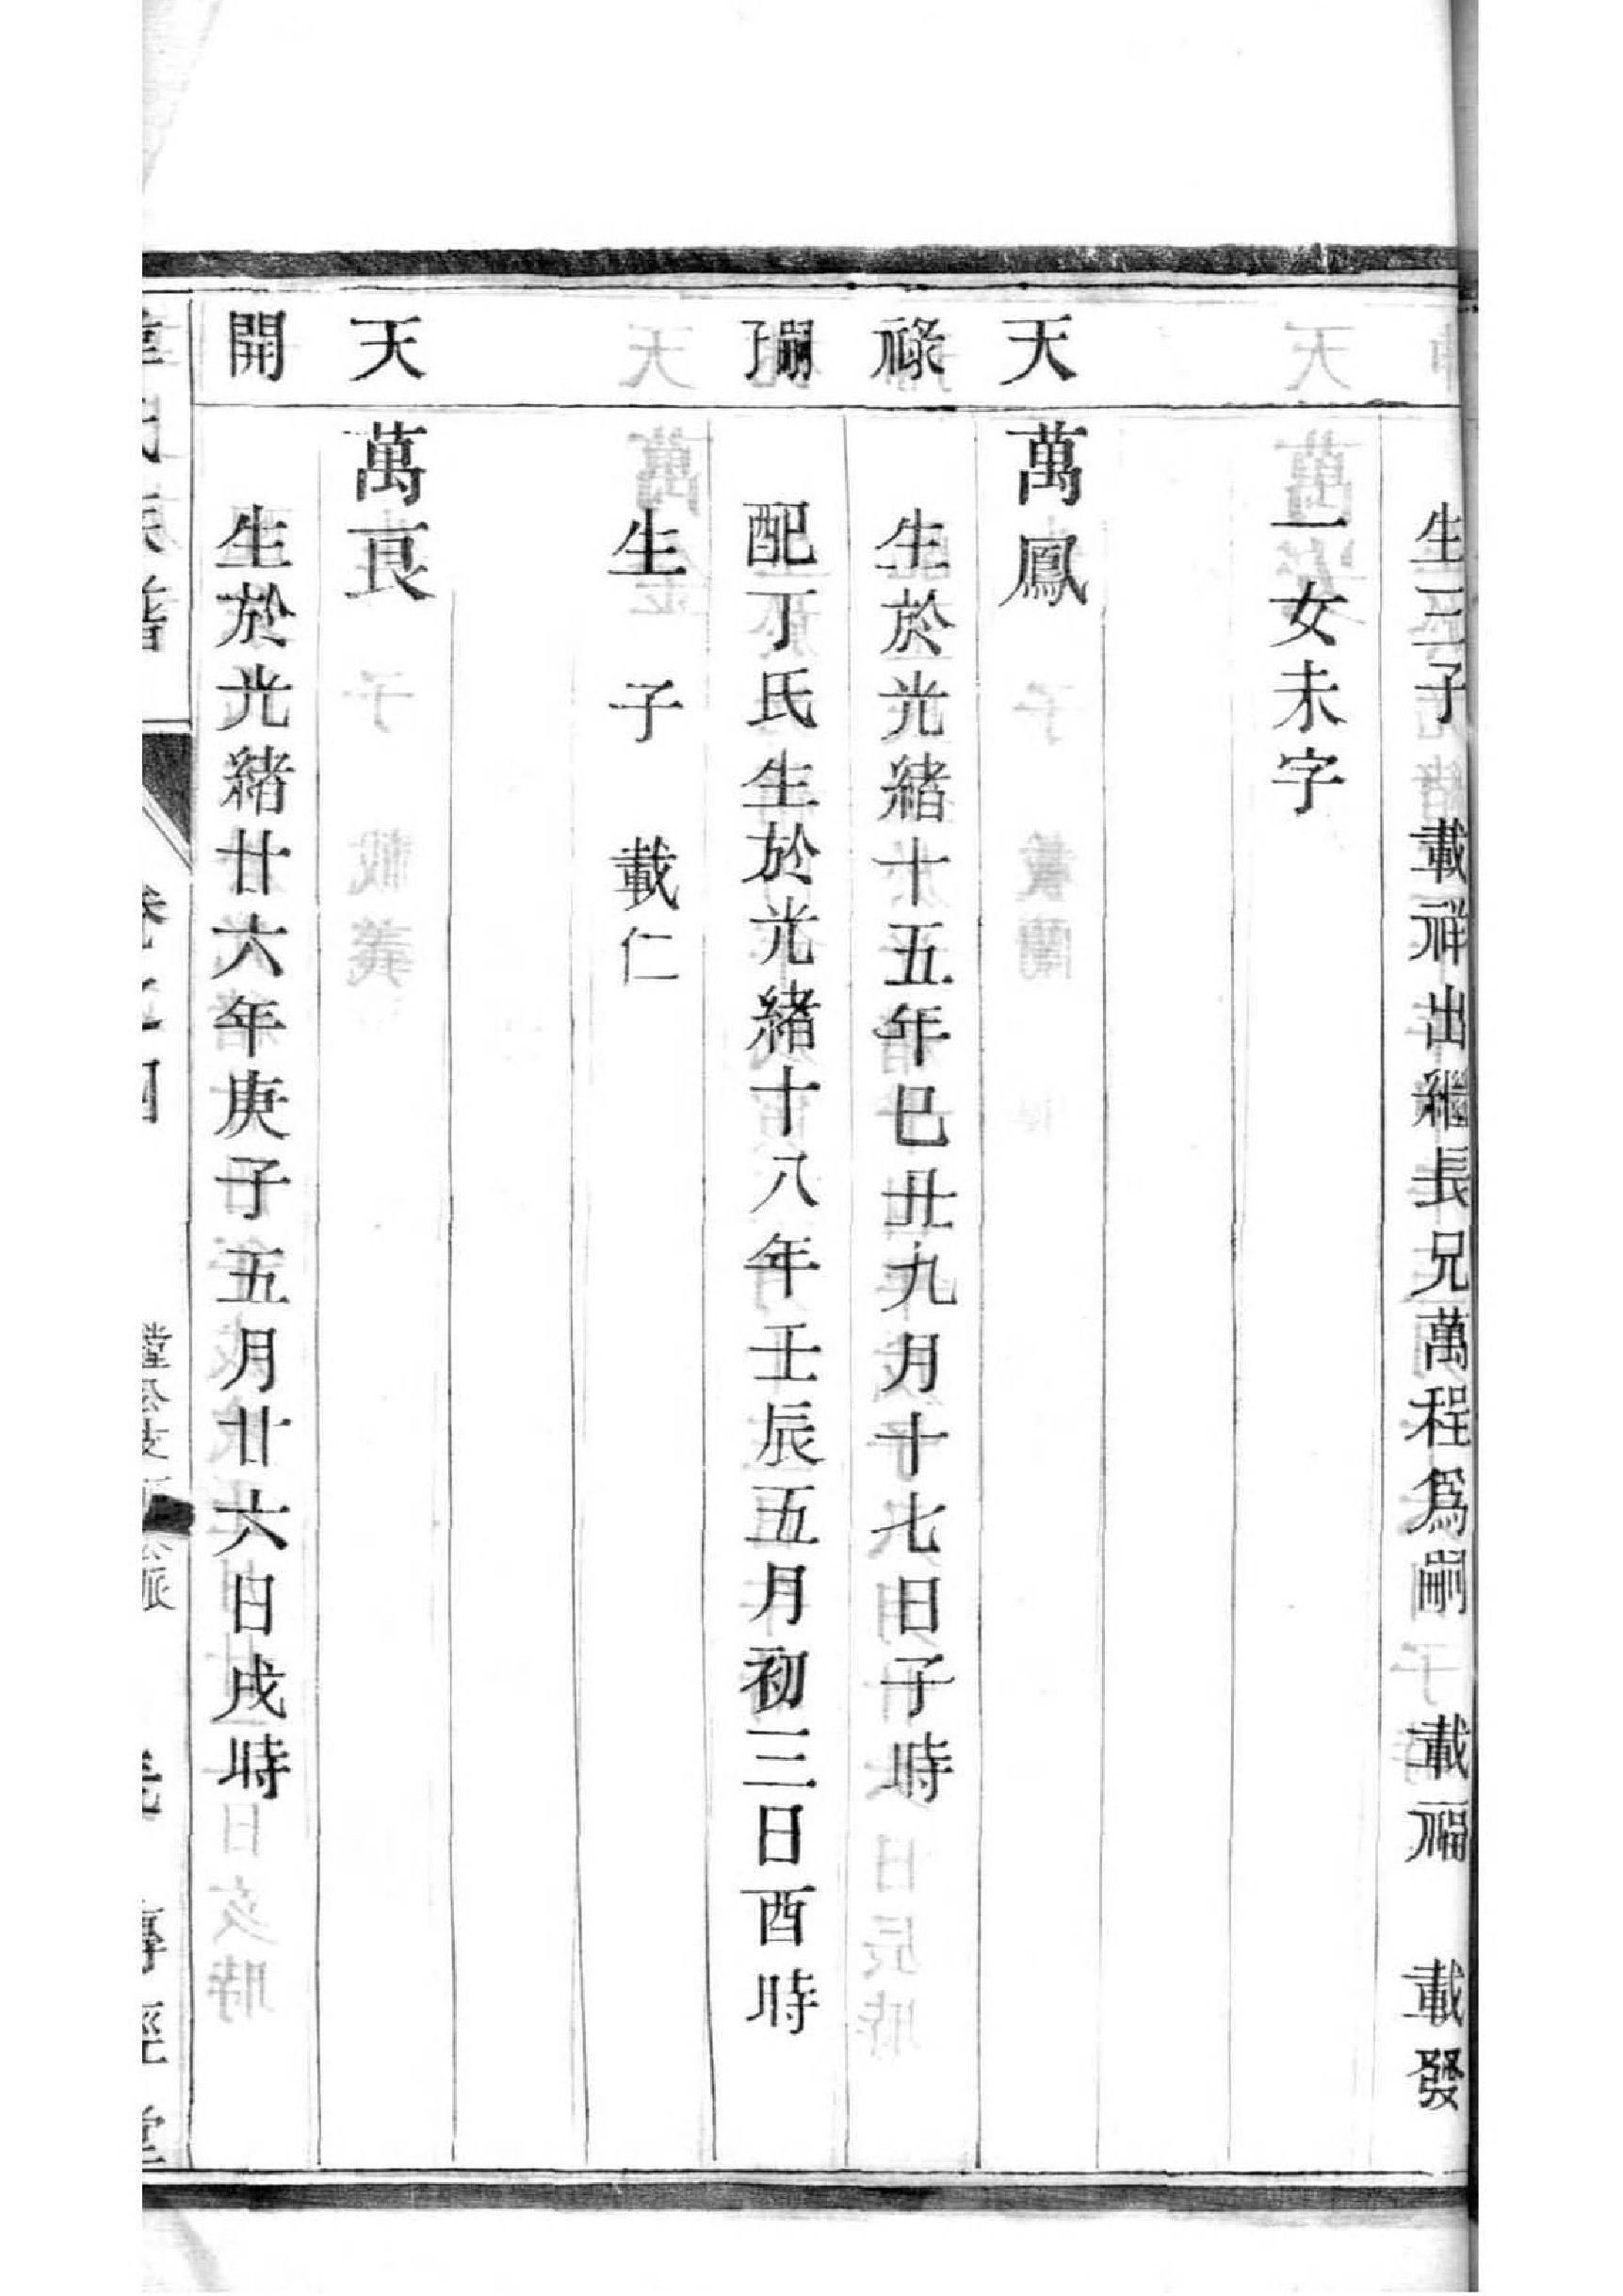 生三子 載祥出繼長兄萬程爲嗣 載福 載發
一女未字
天 萬鳳
祿 生於光緒十五年己丑九月十七日子時
嗣 配丁氏生於光緒十八年壬辰五月初三日酉時
生 子 載仁
天 萬良
開 生於光緒廿六年庚子五月廿六日戌時